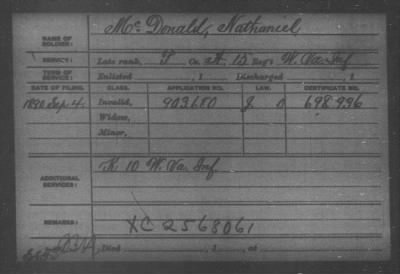 NAME OF SOLDIER: Mc Donald, Nathaniel
SERVICE: Late rank, P Co. A, 15 Reg't W. Va. Inf
TERM OF SERVICE: Enlisted , 1 Discharged , 1
DATE OF FILING. CLASS. APPLICATION NO. LAW. CERTIFICATE NO.
1890 Sep. 4. Invalid, 903.680 J 0 698.996
Widow,
Minor,
ADDITIONAL SERVICES: K 10 W. Va. Inf.
REMARKS: XC 2568061
Died , 1 , at